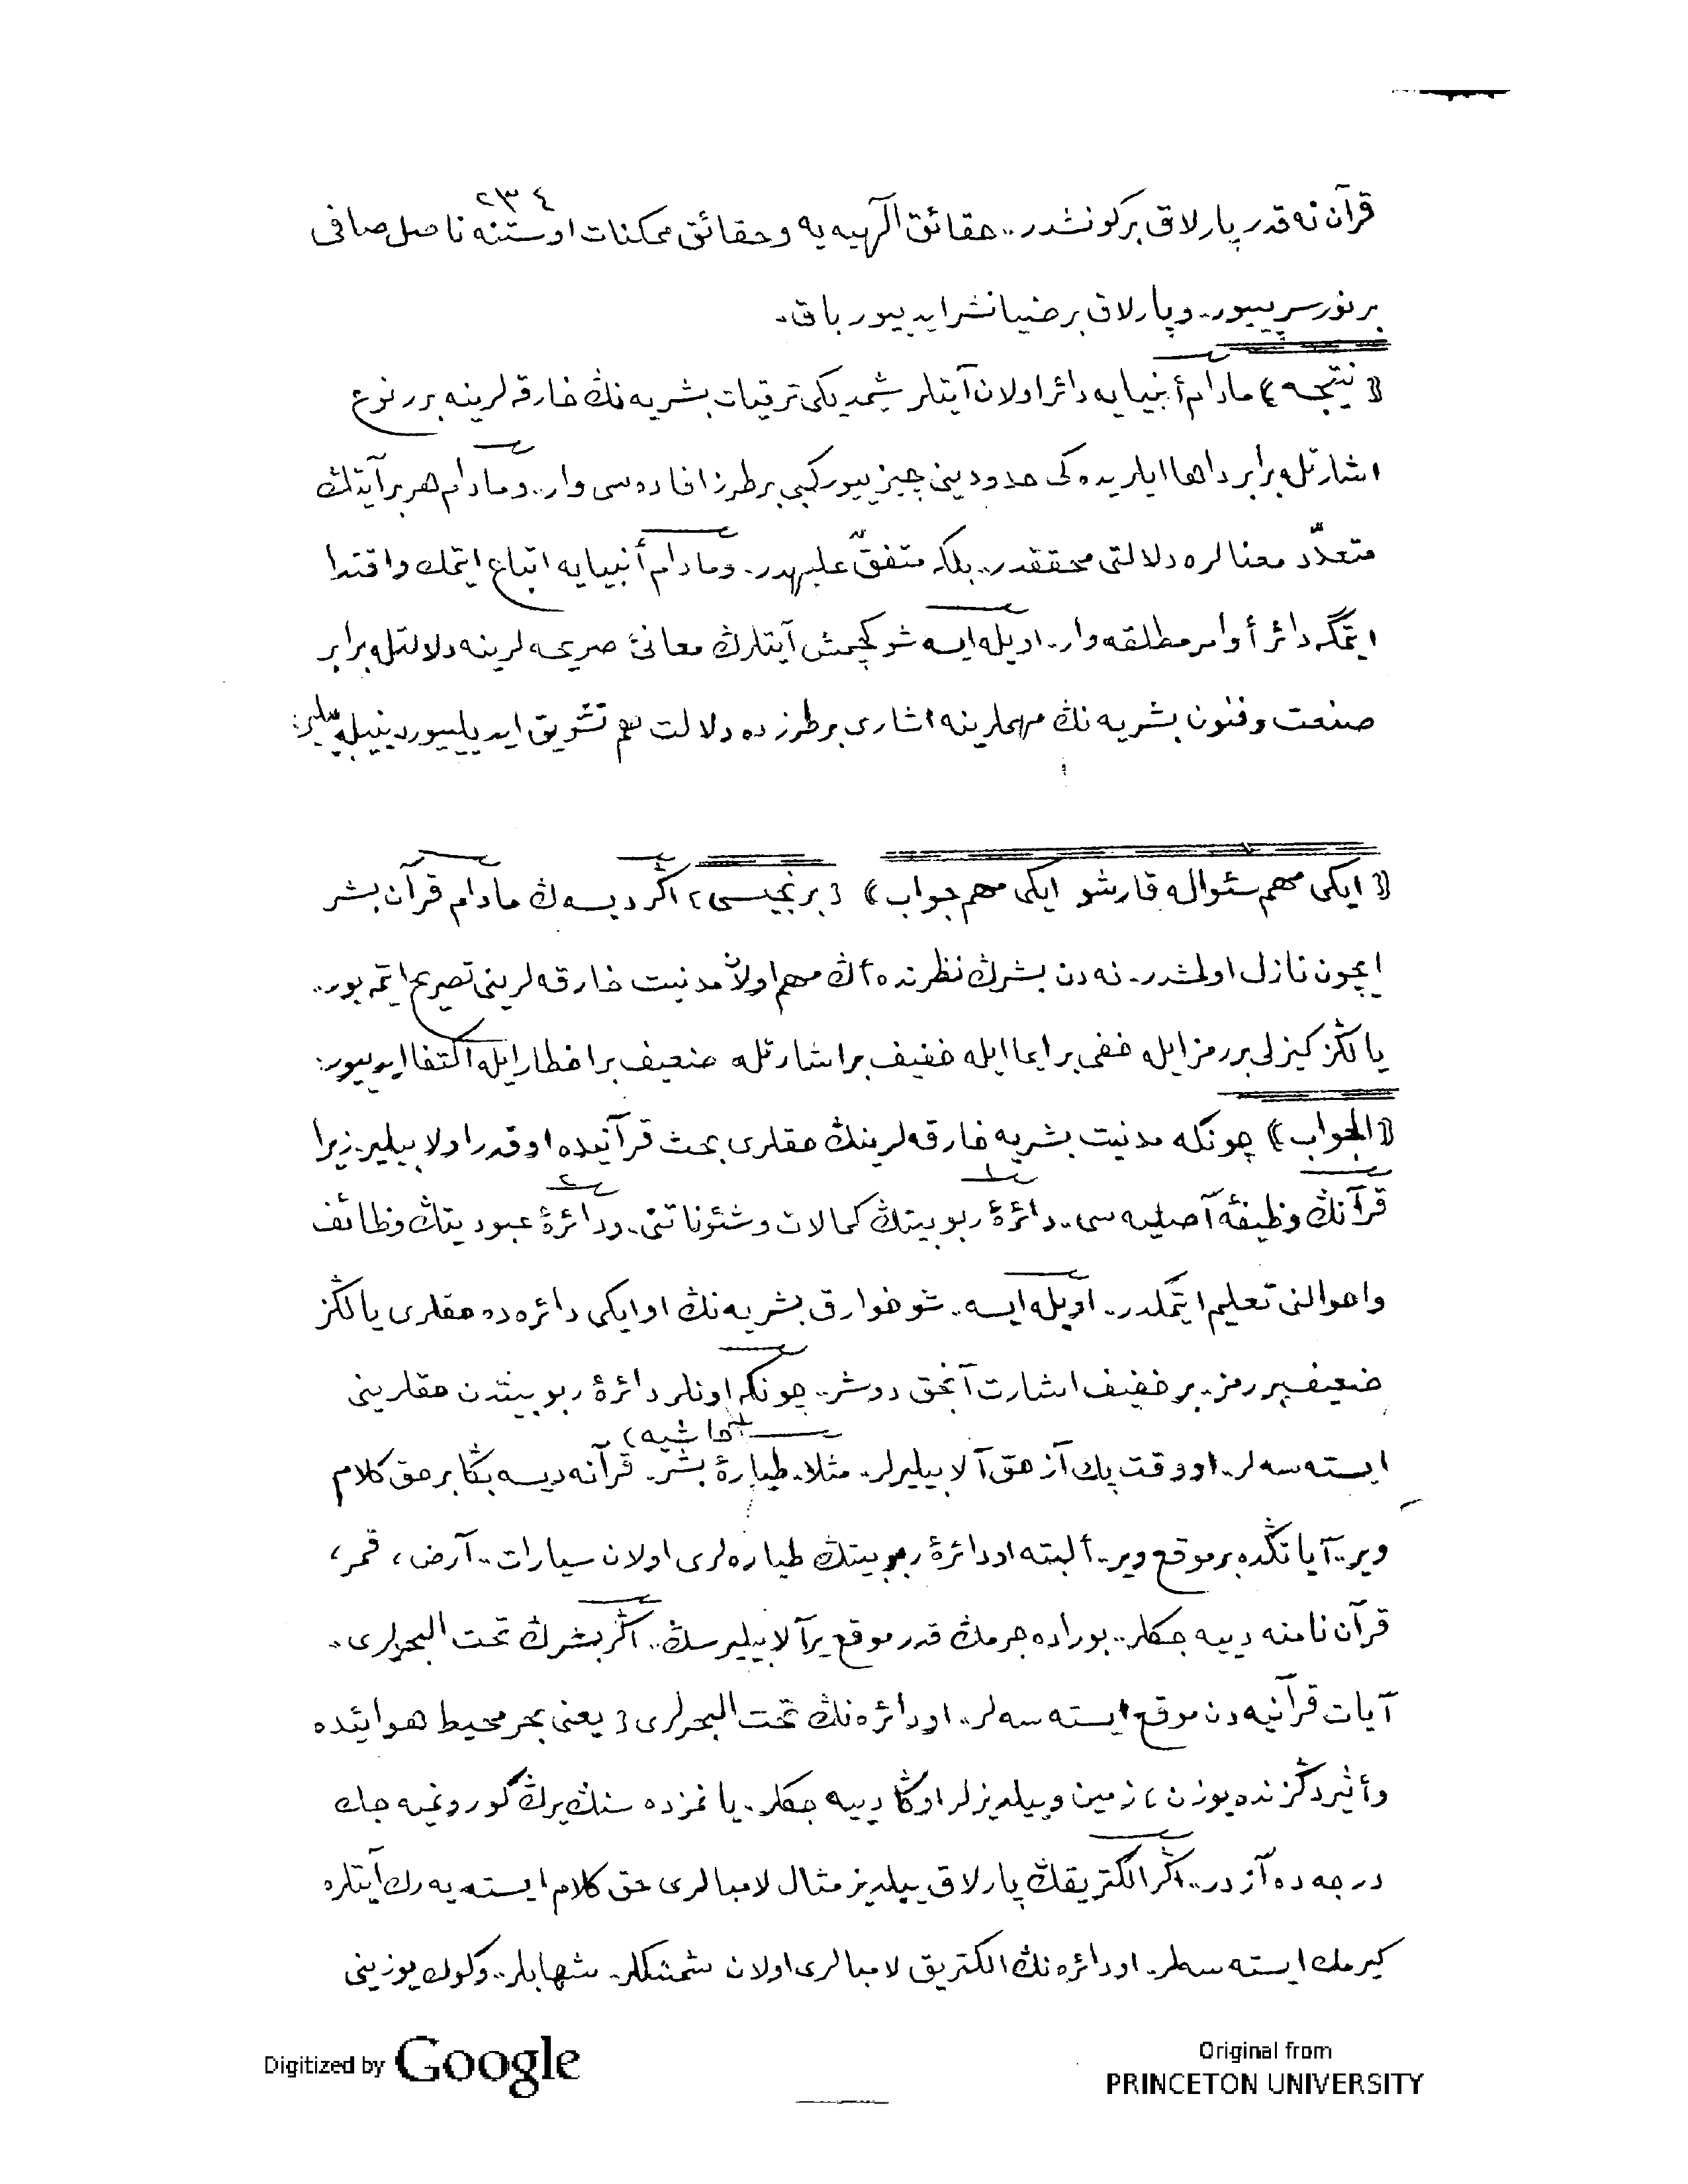 ٢٣٤
قرآن نه قدر پارلاق بر كونشدر.. حقائق الٓهيه يه و حقائق ممكنات اوستنه ناصل صافى
بر نور سرپييور.. و پارلاق بر ضيا نشر ايدييور باق.
﴿نتيجه﴾ مادام أنبيايه دائر اولان آيتلر شيمديكى ترقيات بشريه نڭ خارقه لرينه برر نوع
اشارتله برابر داها ايلريده كى حدودينى چيزييور كبى بر طرز افاده سى وار.. و مادام هر بر آيتڭ
متعدّد معنالره دلالتى محققدر.. بلكه متفقٌ عليهدر.. و مادام أنبيايه اتباع ايتمك و اقتدا
ايتمگه دائر أوامر مطلقه وار.. اويله ايسه شو كچمش آيتلرڭ معانئ صريحه لرينه دلالتله برابر
صنعت و فنون بشريه نڭ مهملرينه اشارى بر طرزده دلالت هم تشويق ايديلييور دينيله بيلير:
﴿ايكى مهم سئواله قارشو ايكى مهم جواب﴾ ﴿برنجيسى﴾ اگر ديسه ڭ مادام قرآن بشر
ايچون نازل اولمشدر.. نه دن بشرڭ نظرنده أڭ مهم اولان مدنيت خارقه لرينى تصريح ايتمه يور..
يالڭز كيزلى بر رمز ايله خفى بر ايما ايله خفيف بر اشارتله ضعيف بر اخطار ايله اكتفا ايدييور:
﴿الجواب﴾ چونكه مدنيت بشريه خارقه لرينڭ حقلرى بحث قرآنيده او قدر اولابيلير. زيرا
قرآنڭ وظيفۀ أصليه سى.. دائرۀ ربوبيتڭ كمالات و شئوناتنى.. و دائرۀ عبوديتڭ وظائف
و احوالنى تعليم ايتمكدر.. اويله ايسه.. شو خوارق بشريه نڭ او ايكى دائره ده حقلرى يالڭز
ضعيف بر رمز.. بر خفيف اشارت آنجق دوشر.. چونكه اونلر دائرۀ ربوبيتدن حقلرينى
(حاشيه)
ايسته سه لر.. او وقت پك آز حق آلابيليرلر.. مثلا.. طيارۀ بشر.. قرآنه ديسه بڭا بر حق كلام
وير.. آياتڭده بر موقع وير.. ألبته او دائرۀ ربوبيتڭ طياره لرى اولان سيارات.. آرض، قمر،
قرآن نامنه دييه جكلر.. بوراده جرمڭ قدر موقع ير آلابيليرسڭ.. اگر بشرڭ تحت البحرلرى..
آيات قرآنيه دن موقع ايسته سه لر.. او دائره نڭ تحت البحرلرى ﴿يعنى بحر محيط هوائيده
و أثير دڭزنده يوزن﴾ زمين و ييلديزلر اوڭا دييه جكلر.. يانمزده سنڭ يرڭ گورونميه جك
درجه ده آزدر.. اگر الكتريقڭ پارلاق ييلديز مثال لامبالرى حق كلام ايسته يه رك آيتلره
كيرمك ايسته سه لر.. او دائره نڭ الكتريق لامبالرى اولان شمشكلر.. شهابلر.. و كوك يوزينى
Digitized by Google
Original from
PRINCETON UNIVERSITY